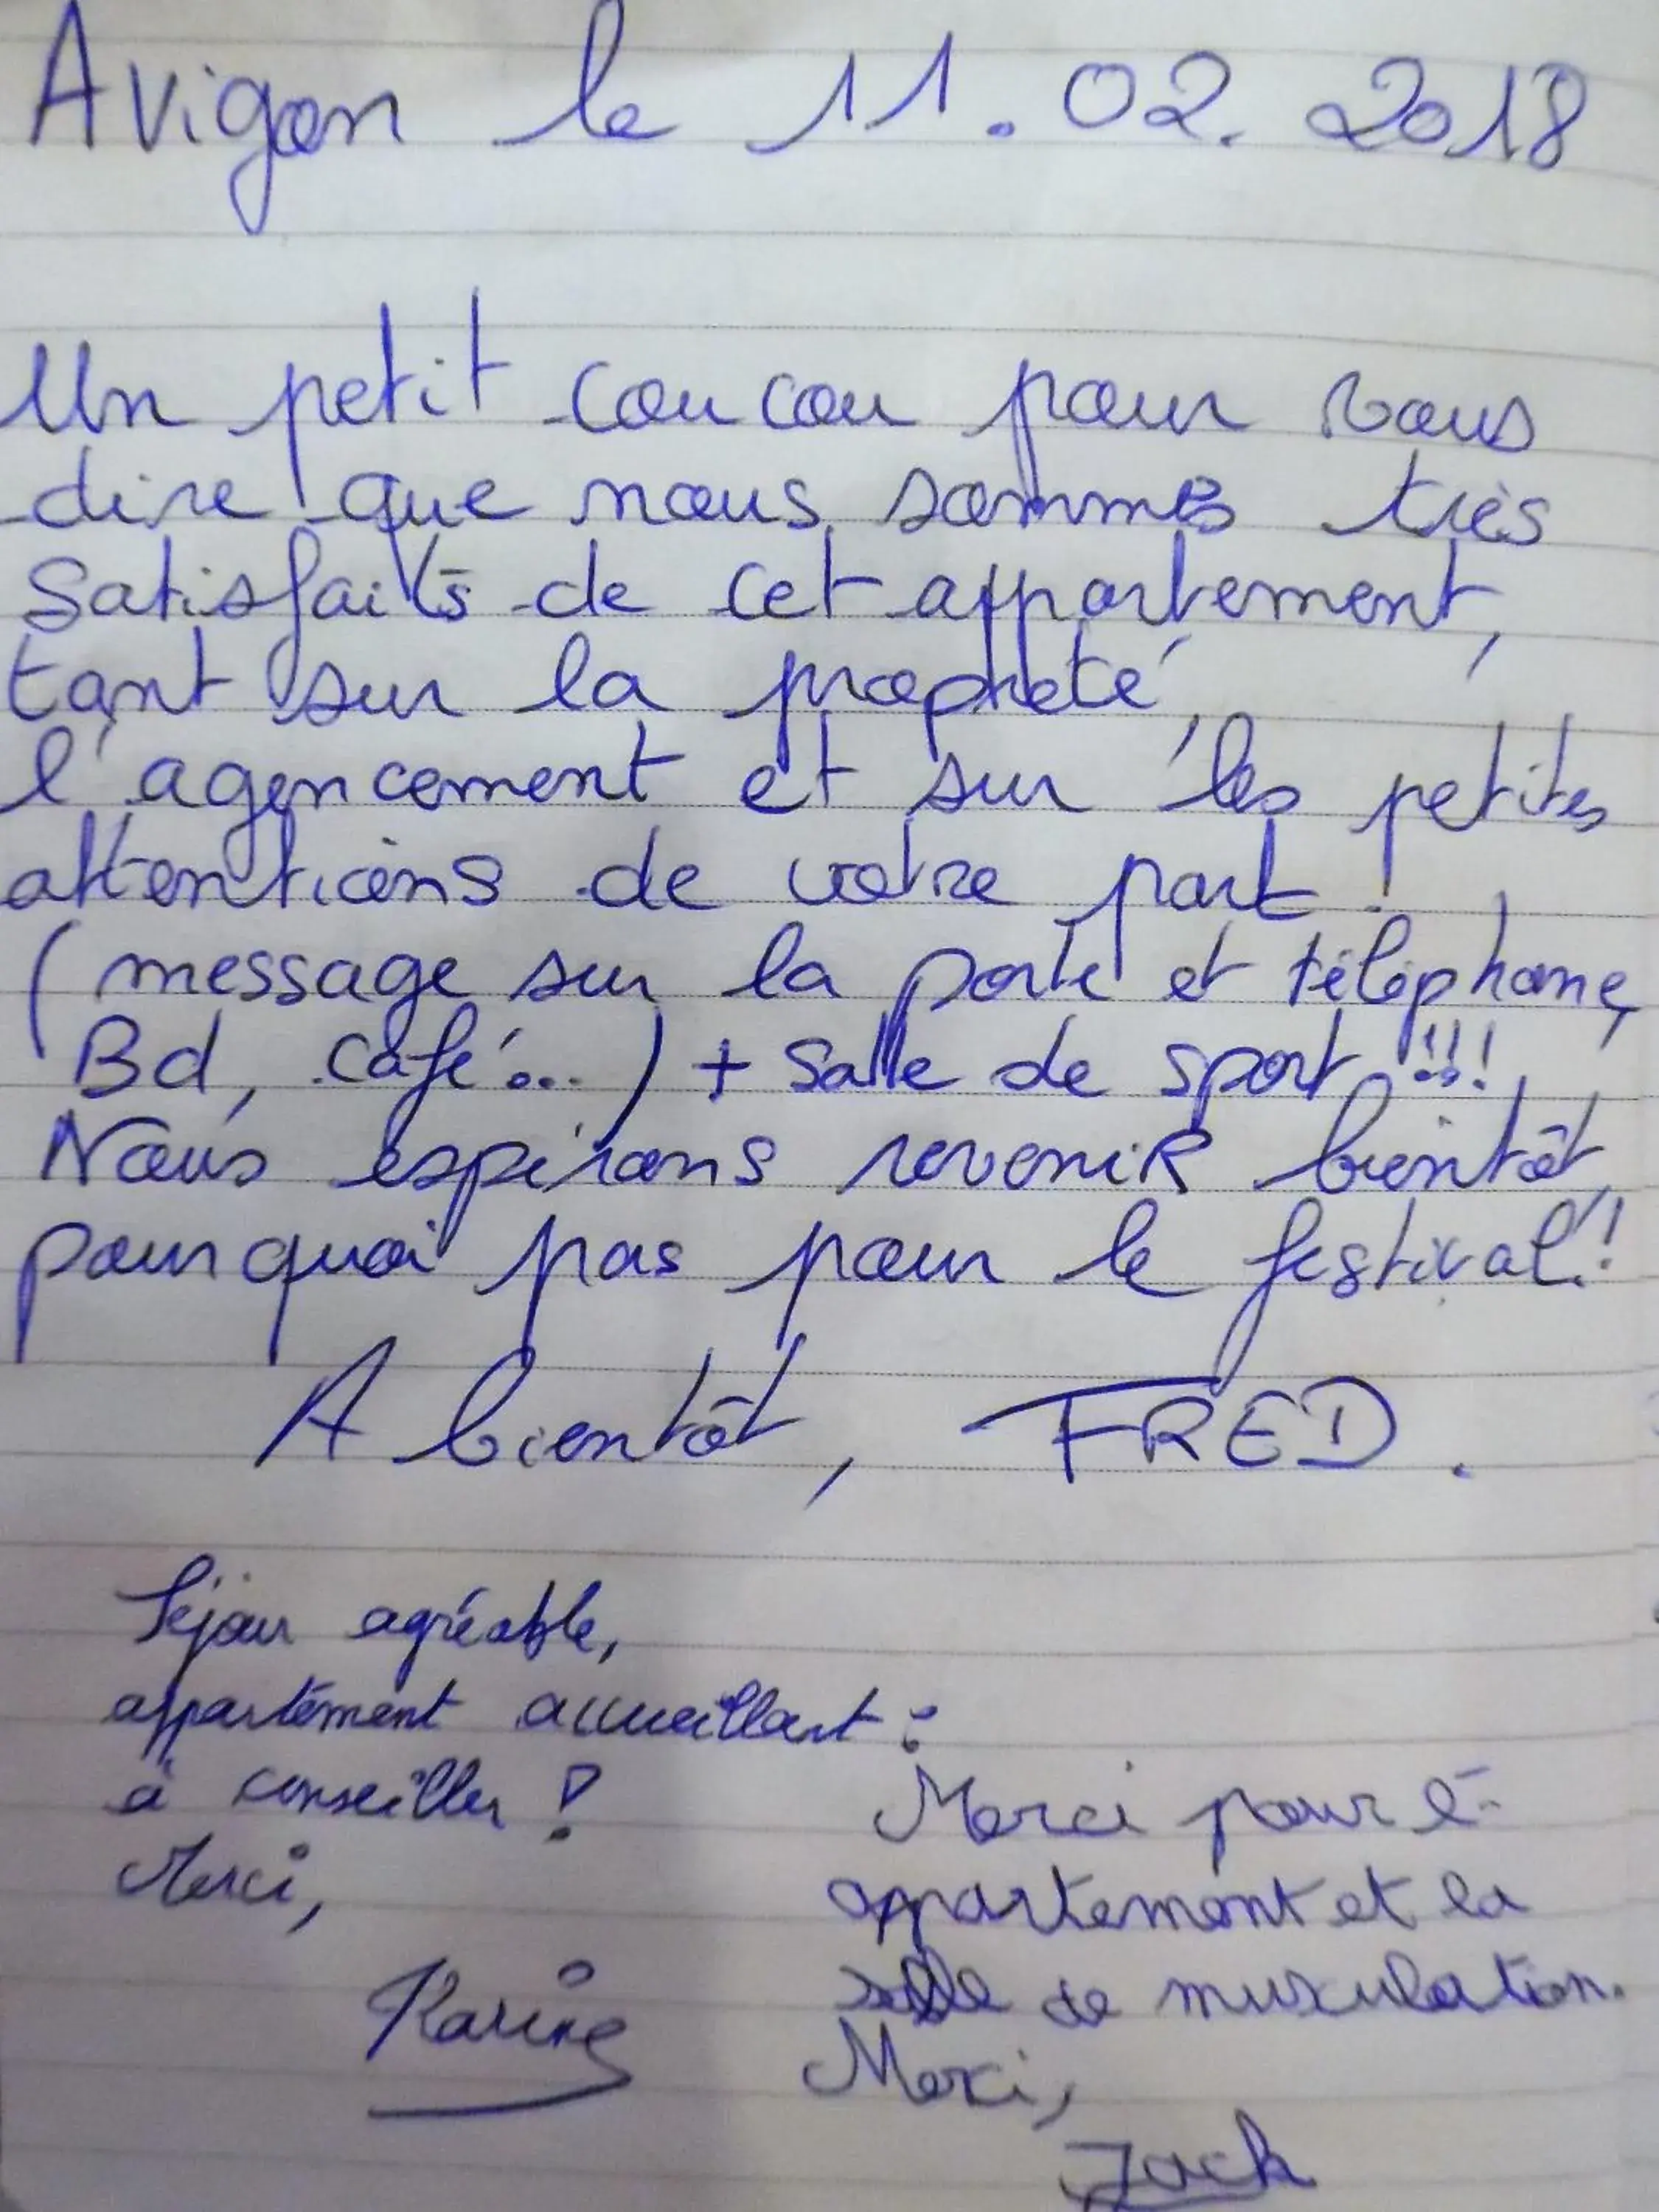 Avigon le 11.02.2018
Un petit coucou pour vous
dire que nous sommes très
satisfaits de cet appartement,
tant sur la propreté,
l'agencement et sur les petites
attentions de votre part !
(message sur la porte et téléphone,
Bd, café...) + salle de sport !!!
Nous espérons revenir bientôt,
pourquoi pas pour le festival !!
A bientôt, FRED.
Séjour agréable,
appartement accueillant :
à conseiller !
Merci,
Karine
Merci pour l'-
appartement et la
salle de musculation.
Merci,
Jack